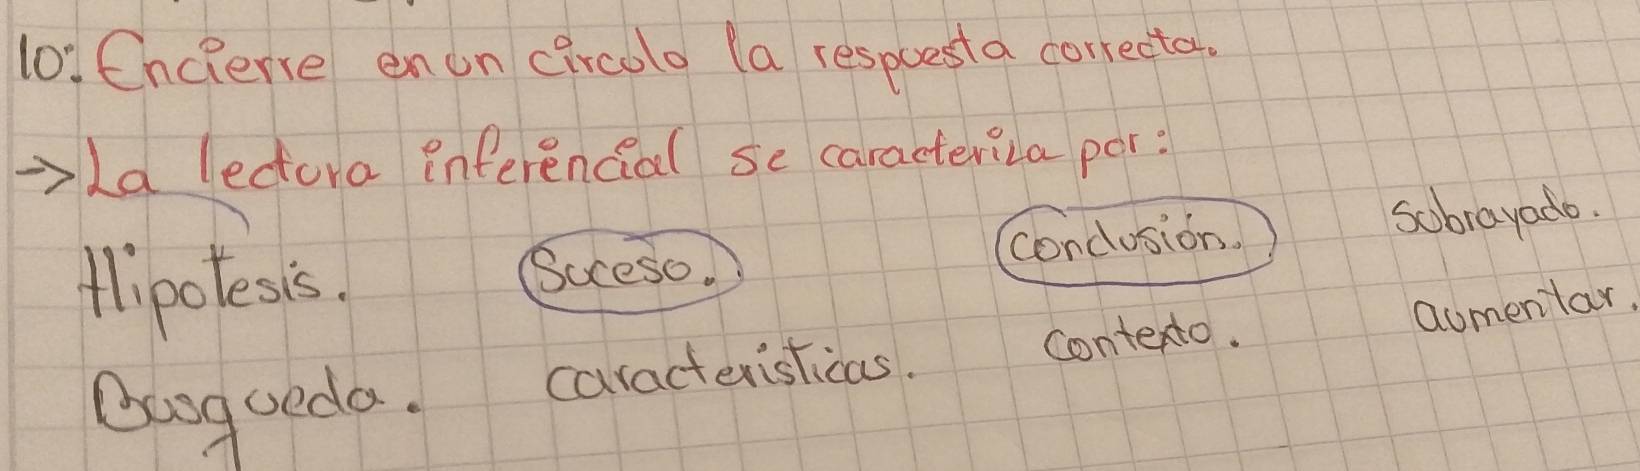 10: Encierre en un círculo la respuesta correcta.
→ La lectura inferencial se caracteriza por:
Hipotesis. Suceso. Conclusión. Subrayado.
Busqueda. características. contexto. aumentar.